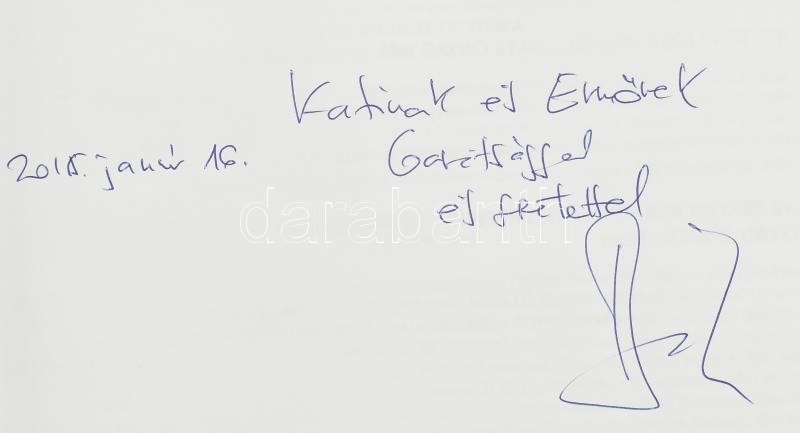 Katinak és Ernőnek
Barátsággal
2015. január 16.
és szeretettel
darabanth